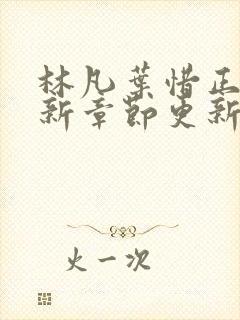 林凡葉惜正
新章節更新
火一次